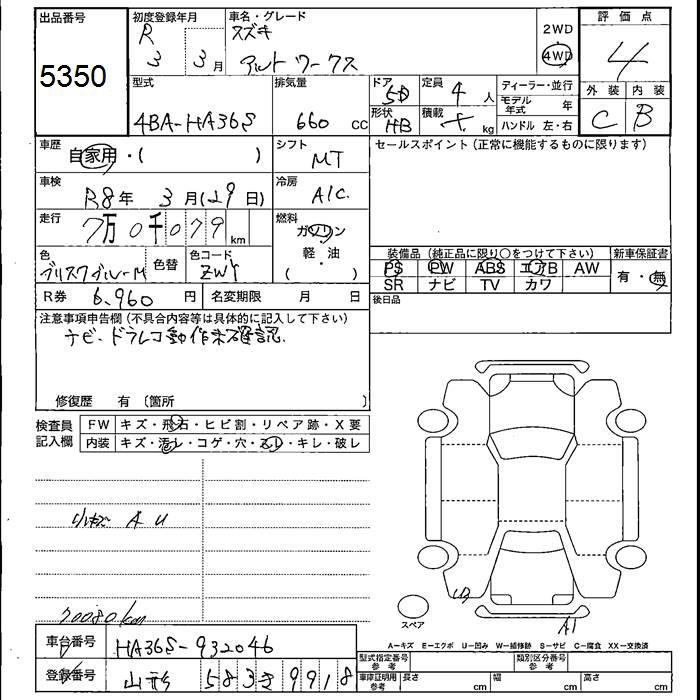 出品番号
5350
初度登録年月
R
3 3月
車名・グレード
スズキ
アルト ワークス
2WD
4WD
評価点
4
外装 内装
C B
型式
4BA-HA36S
排気量
660 cc
ドア
5D
形状
HB
定員
4人
積載
kg
ディーラー・並行
モデル年式 年
ハンドル 左・右
車歴
自家用・( )
シフト
MT
セールスポイント(正常に機能するものに限ります)
車検
R8年 3月(29日)
冷房
A/C
走行
7万0千079km
燃料
ガソリン
軽・油
( )
色
ブリスクブルーM
色替
色コード
ZWY
装備品(純正品に限り○をつけて下さい)
PS PW ABS エアB AW
SR ナビ TV カワ
新車保証書
有・無
R券 6,960円
名変期限 月 日
後日品
注意事項申告欄(不具合内容等は具体的に記入して下さい)
ナビ、ドラレコ動作未確認
修復歴 有 〔箇所 〕
検査員
記入欄
FW キズ・飛石・ヒビ割・リペア跡・X要
内装 キズ・汚レ・コゲ・穴・スレ・キレ・破レ
小キズ A U
70080km
スペア
A1
A-キズ E-エクボ U-凹み W-補修跡 S-サビ C-腐食 XX-交換済
車台番号
HA36S-932046
登録番号
山形 583き9918
型式指定番号
参考
類別区分番号
参考
車庫証明用
参考
長さ cm
幅 cm
高さ cm